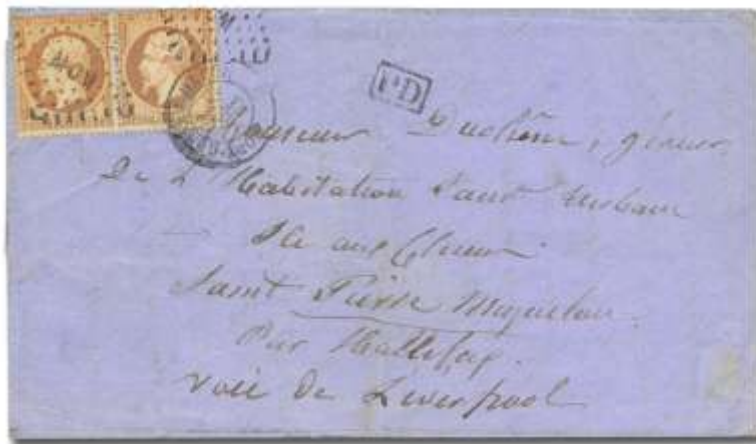 PD
Monsieur Duchêne, gérant
De L'Habitation Saint Urbain
Ile aux Chiens
Saint Pierre Miquelon.
Par Hallifax.
Voie de Liverpool